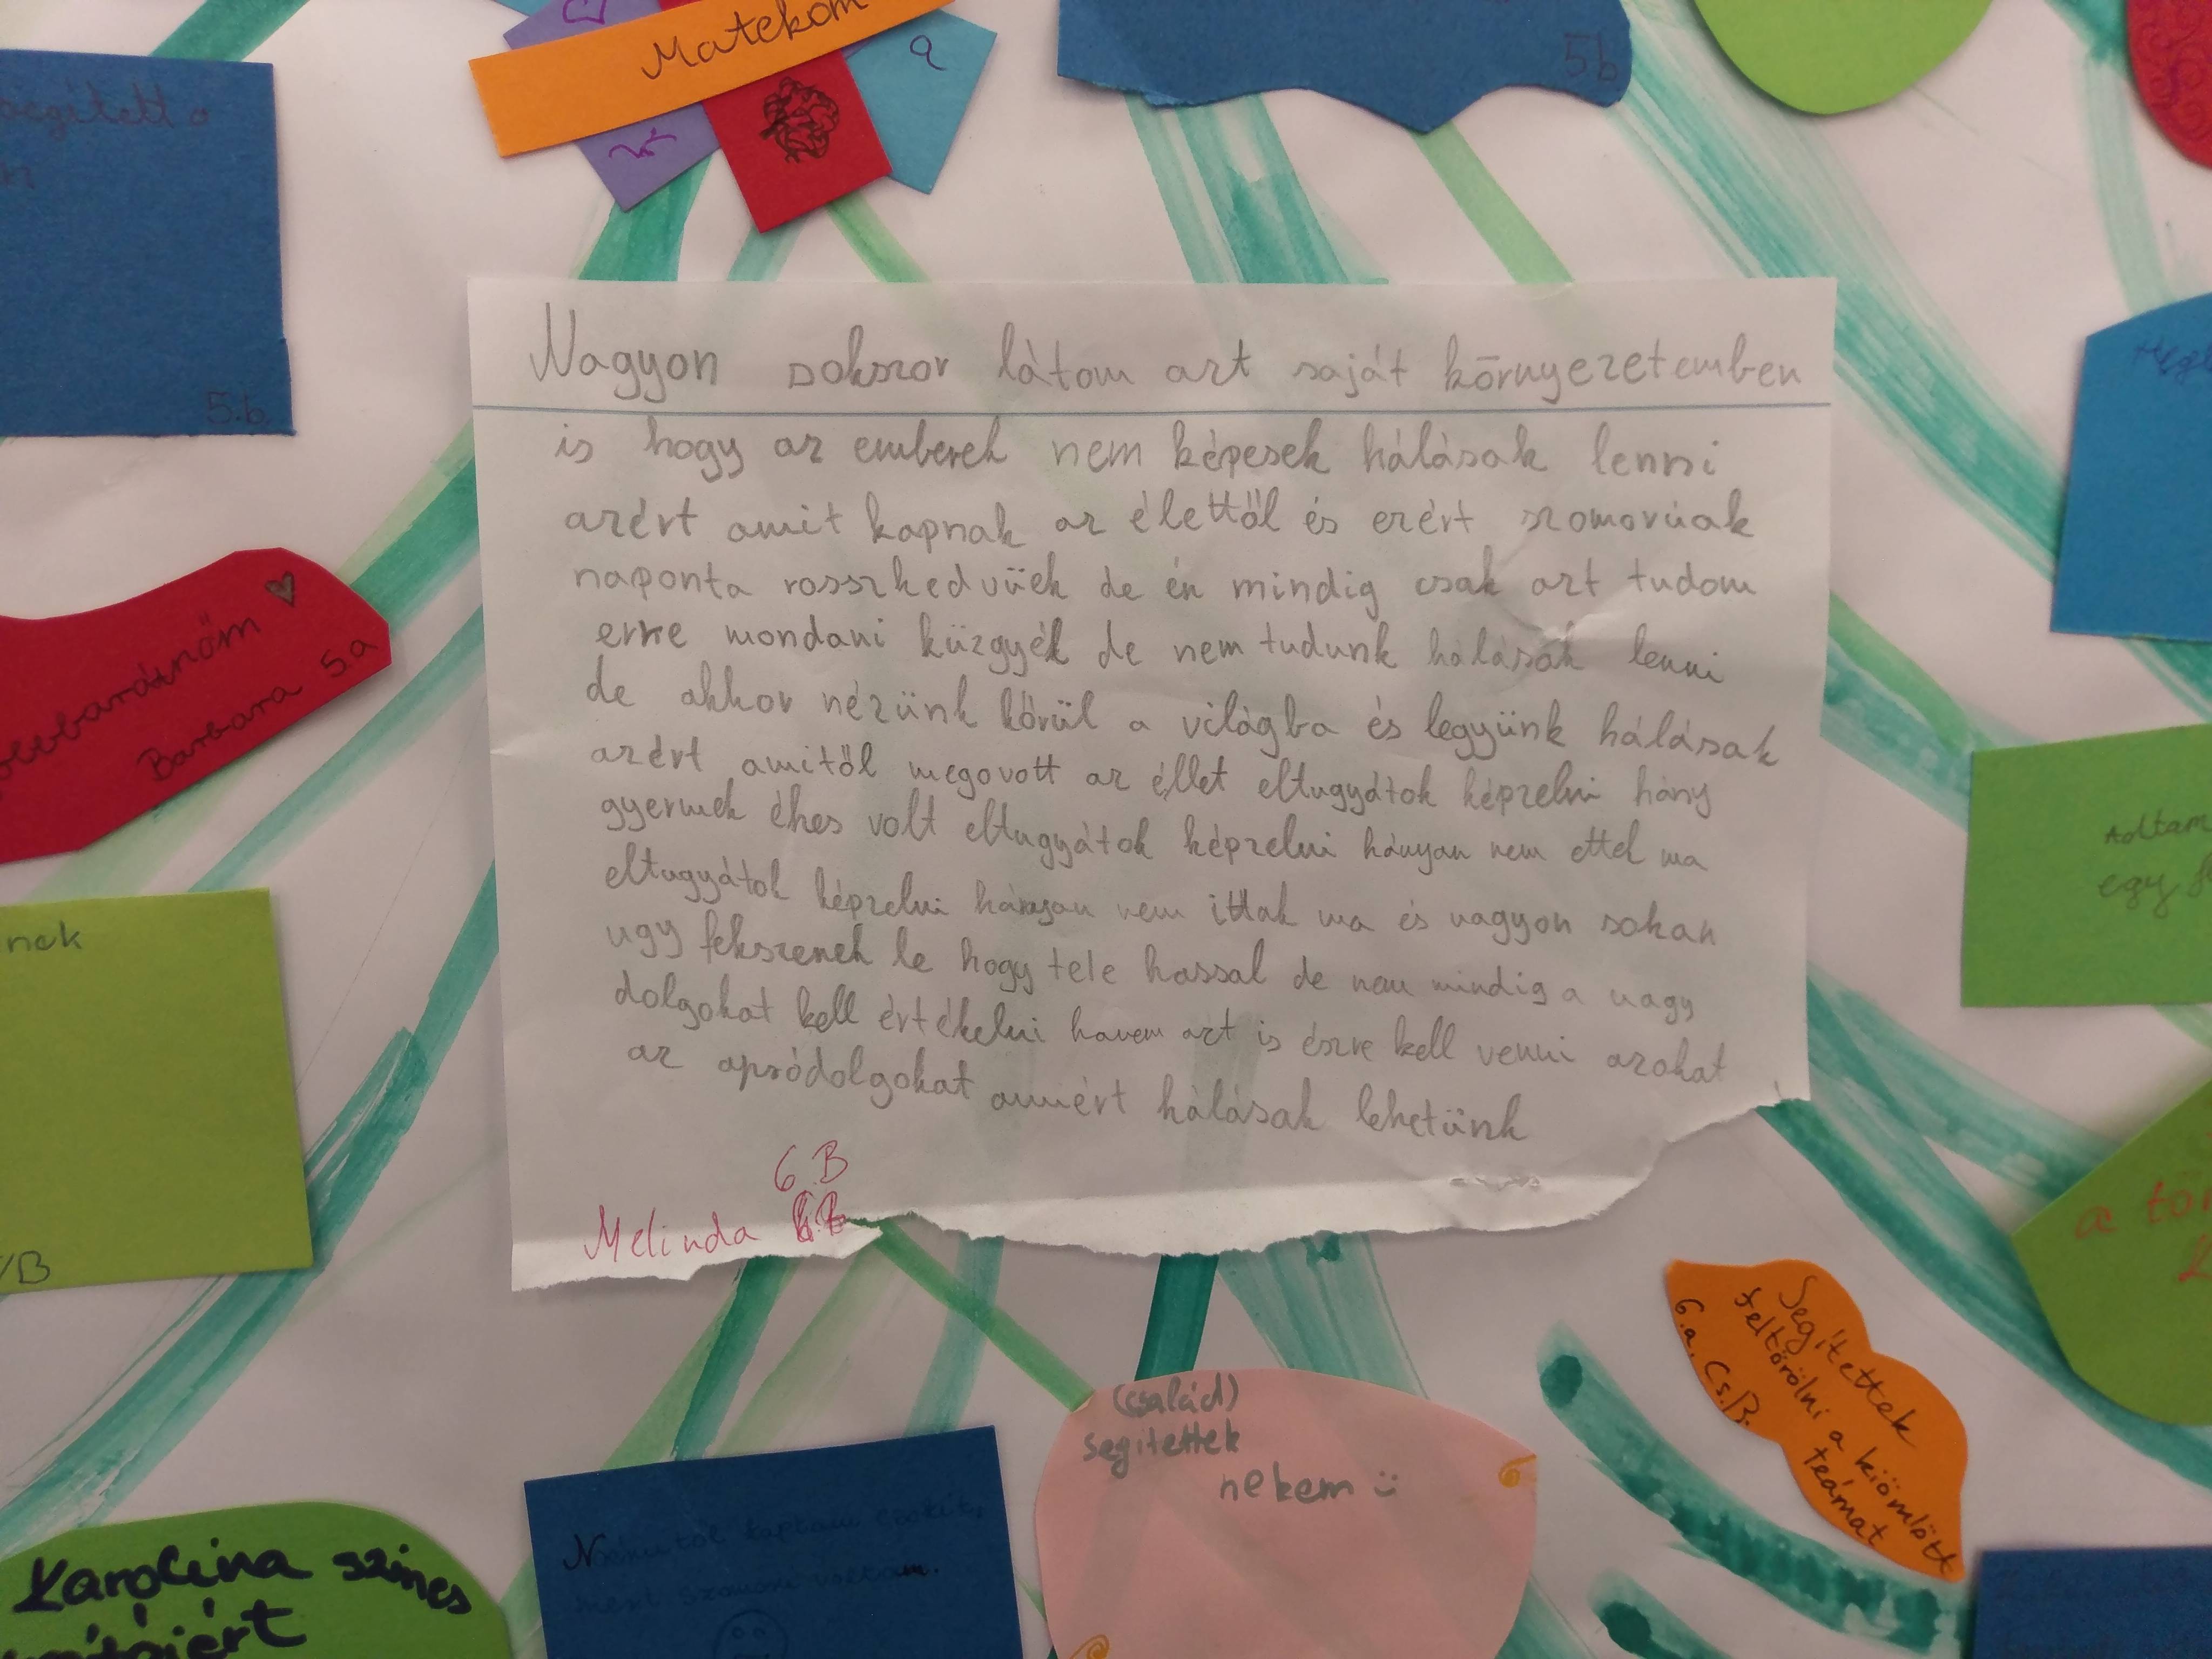 Matekom
5b
segített a
5.b.
Nagyon sokszor látom azt saját környezetemben
is hogy az emberek nem képesek hálásak lenni
azért amit kapnak az élettől és ezért szomorúak
naponta rosszkedvűek de én mindig csak azt tudom
erre mondani küzgyék de nem tudunk hálásak lenni
de akkor nézünk körül a világba és legyünk hálásak
azért amitől megovott az éllet eltugyátok képzelni hány
gyermek éhes volt eltugyátok képzelni hányan nem ettek ma
eltugyátok képzelni hányan nem ittak ma és nagyon sokan
ugy fekszenek le hogy tele hassal de nem mindig a nagy
dolgokat kell értékelni hanem azt is észre kell venni azokat
az apródolgokat amiért hálásak lehetünk
6.B
Melinda
Barbara 5.a
nek
/B
Adtam
egy
a tör
Segítettek
feltörölni a kiömlött
teámat
6.a. Cs.B.
(család)
segitettek
nekem
kaptam
mert szomorú voltam.
Karolina szines